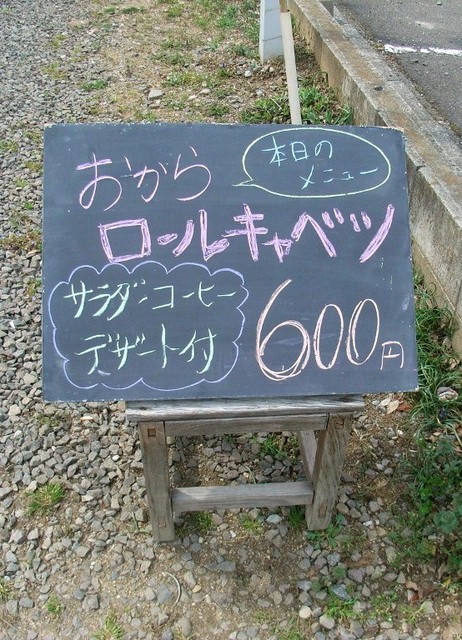 本日の
メニュー
おから
ロールキャベツ
サラダ・コーヒー
デザート付
600円